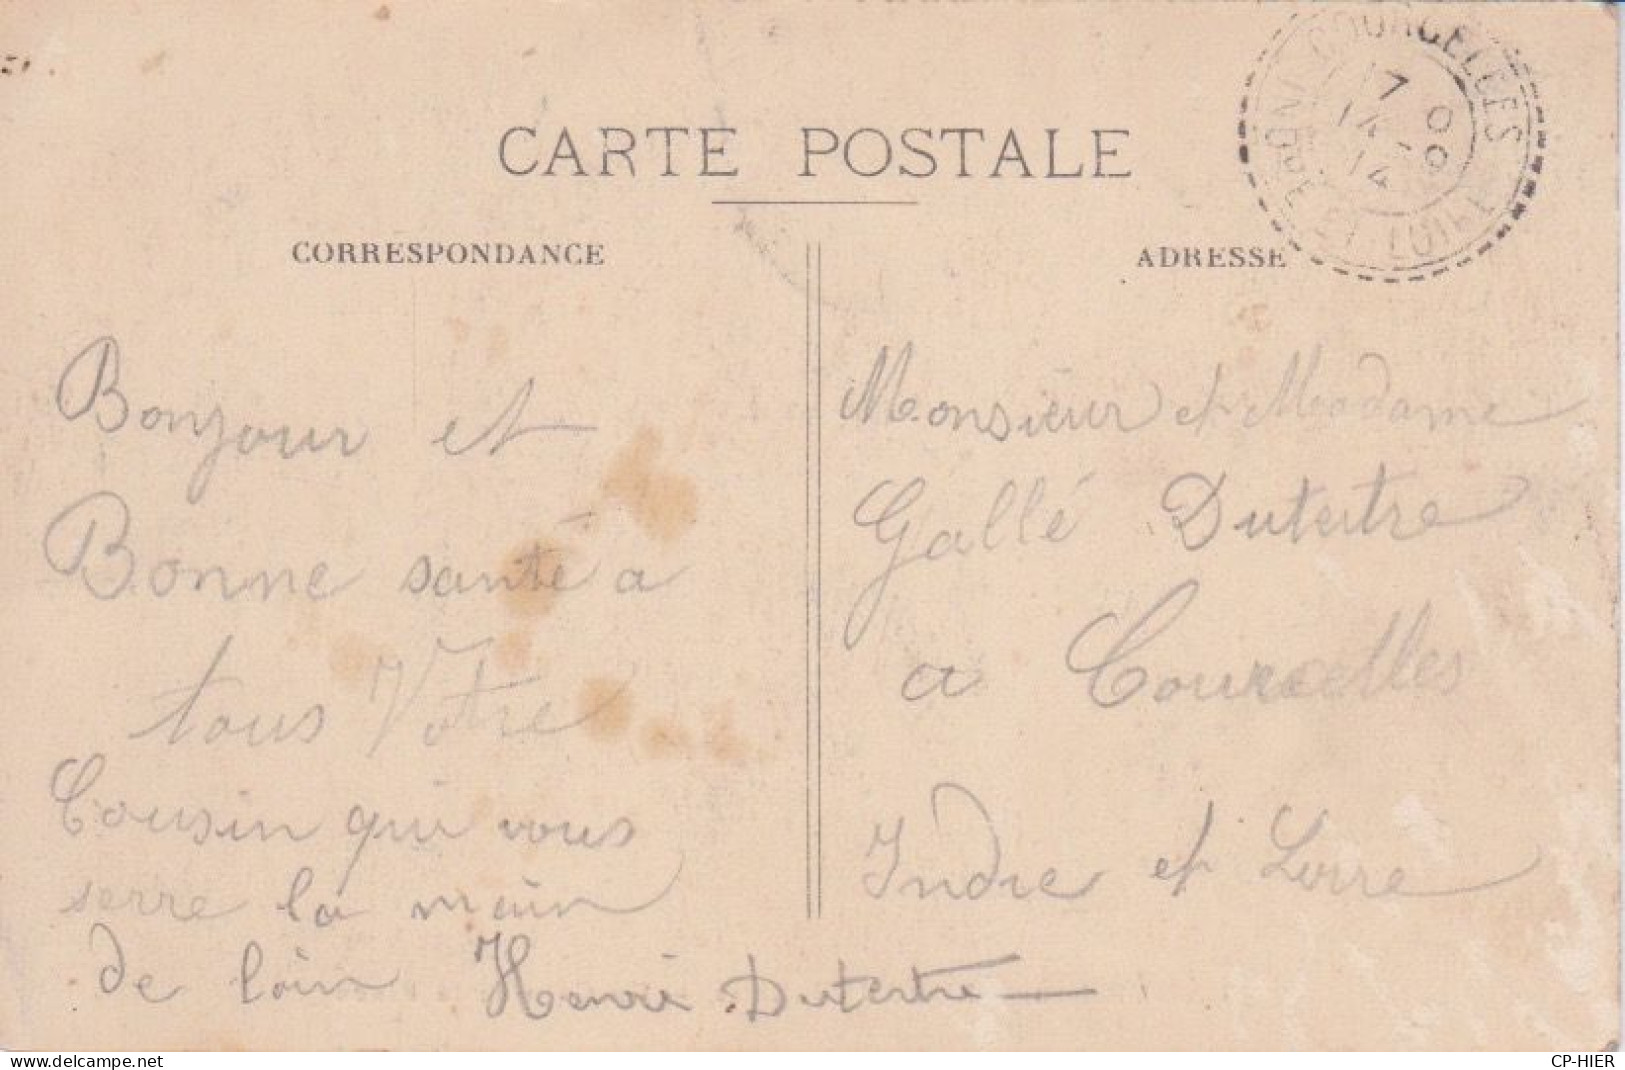 CARTE POSTALE
CORRESPONDANCE
Bonjour et
Bonne santé a
tous Votre
Cousin qui vous
serre la main
de loin Henri Dutertre
ADRESSE
COURCELLES
17
14
INDRE ET LOIRE
Monsieur et Madame
Gallé Dutertre
a Courcelles
Indre et Loire
delcampe.net
CP-HIER